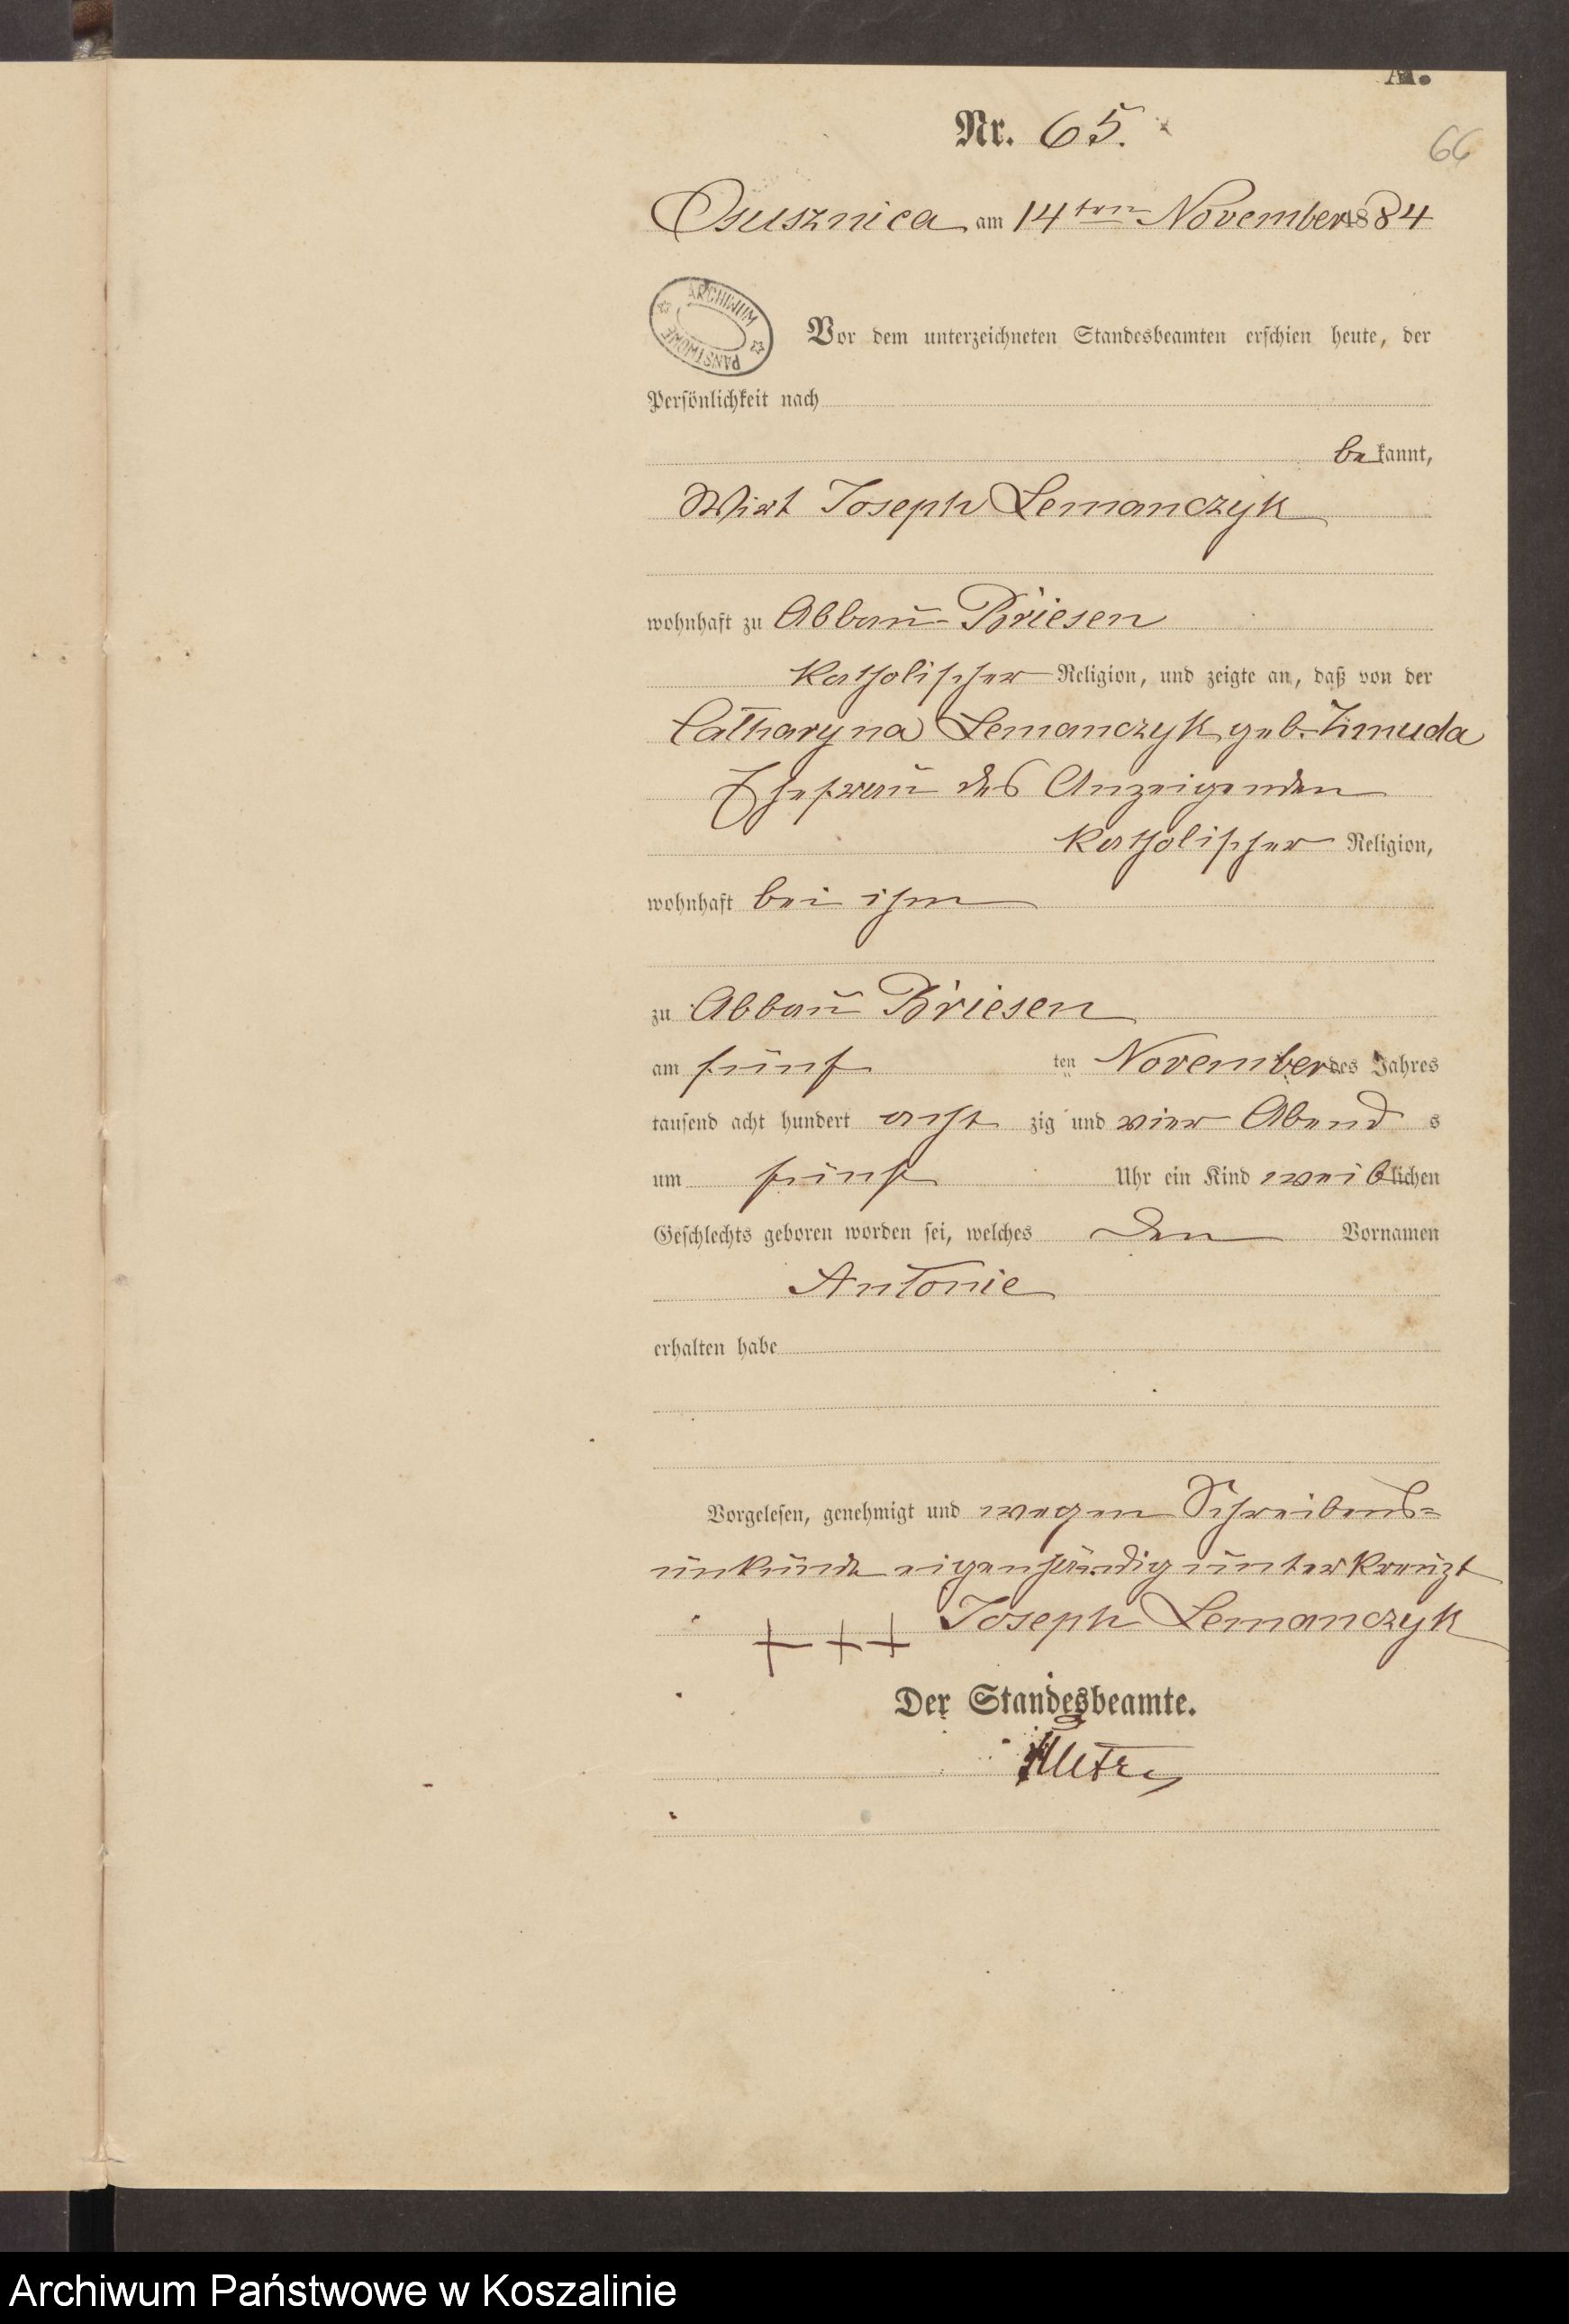 A.
Nr. 65.
66
Osusznica am 14ten November 1884
ARCHIWUM PAŃSTWOWE
Vor dem unterzeichneten Standesbeamten erschien heute, der
Persönlichkeit nach
bekannt,
Wirt Joseph Lemanczyk
wohnhaft zu Abbau-Briesen
katholischer Religion, und zeigte an, daß von der
Catharyna Lemanczyk geb. Zmuda
Ehefrau des Anzeigenden
katholischer Religion,
wohnhaft bei ihm
zu Abbau Briesen
am fünften November des Jahres
tausend acht hundert achtzig und vier Abends
um fünf Uhr ein Kind weiblichen
Geschlechts geboren worden sei, welches den Vornamen
Antonie
erhalten habe
Vorgelesen, genehmigt und wegen Schreibens-
unkunde eigenhändig unterkreuzt
+++ Joseph Lemanczyk
Der Standesbeamte.
Archiwum Państwowe w Koszalinie